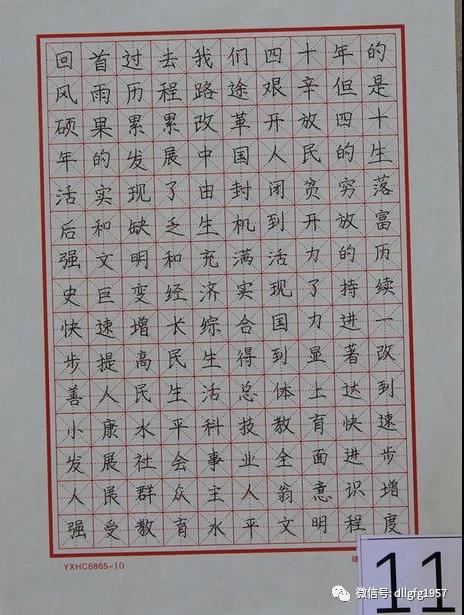 回首过去我们四十年的
风雨历程路途艰辛但是
硕果累累改革开放四十
年的发展中国人民的生
活实现了由封闭贫穷落
后和缺乏生机到开放富
强文明和充满活力的历
史巨变经济实现了持续
快速增长综合国力进一
步提高民生得到显著改
善人民生活总体上达到
小康水平科技教育快速
发展社会事业全面进步
人民群众主人翁意识增
强受教育水平文明程度
YXHC6865-10
11
微信号: dllgfg1957